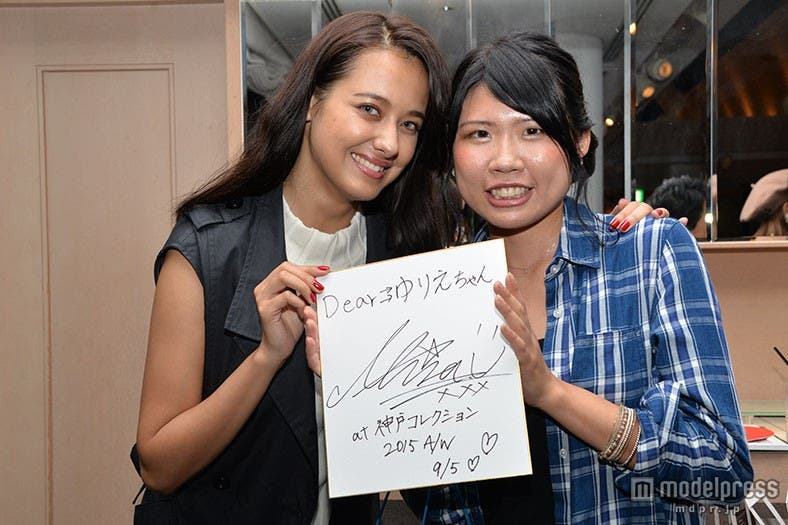 Dear ゆりえちゃん
xxx
at 神戸コレクション
2015 A/W
9/5
modelpress
mdpr.jp